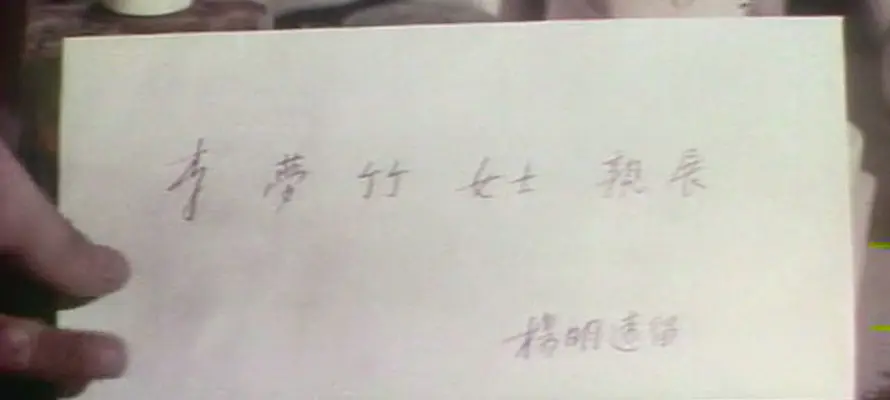 李夢竹 女士 親展
楊明遠留